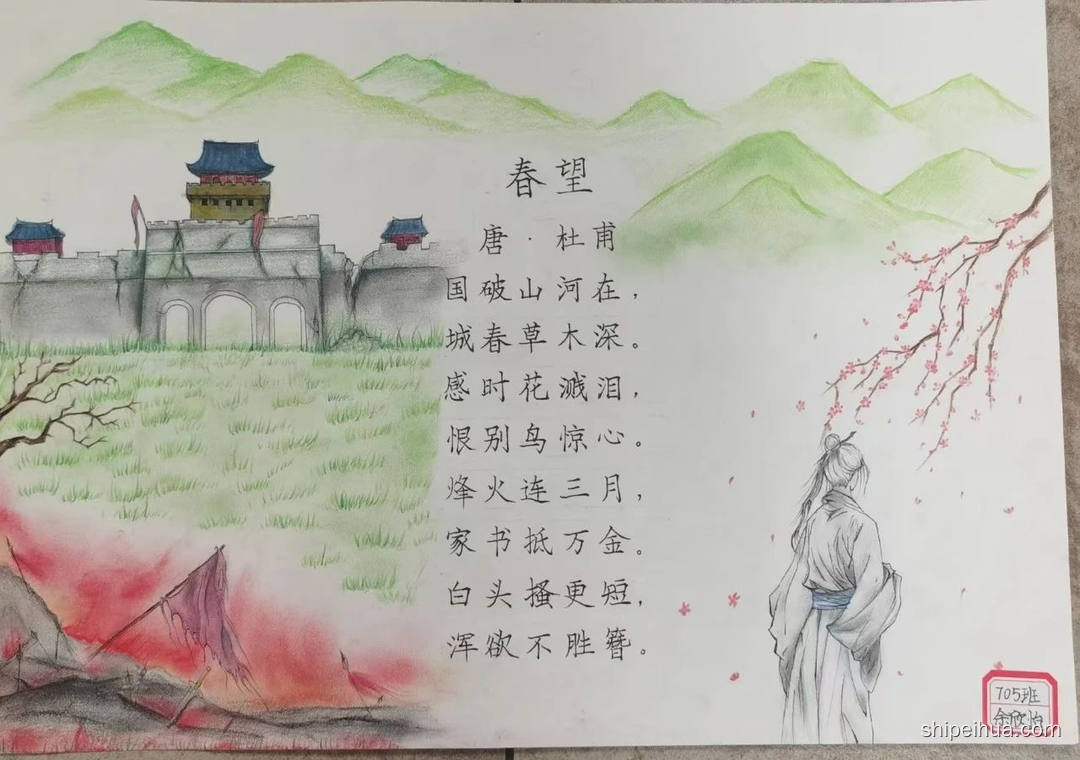 春望
唐·杜甫
国破山河在，
城春草木深。
感时花溅泪，
恨别鸟惊心。
烽火连三月，
家书抵万金。
白头搔更短，
浑欲不胜簪。
705班
余欣怡
shipeihua.com